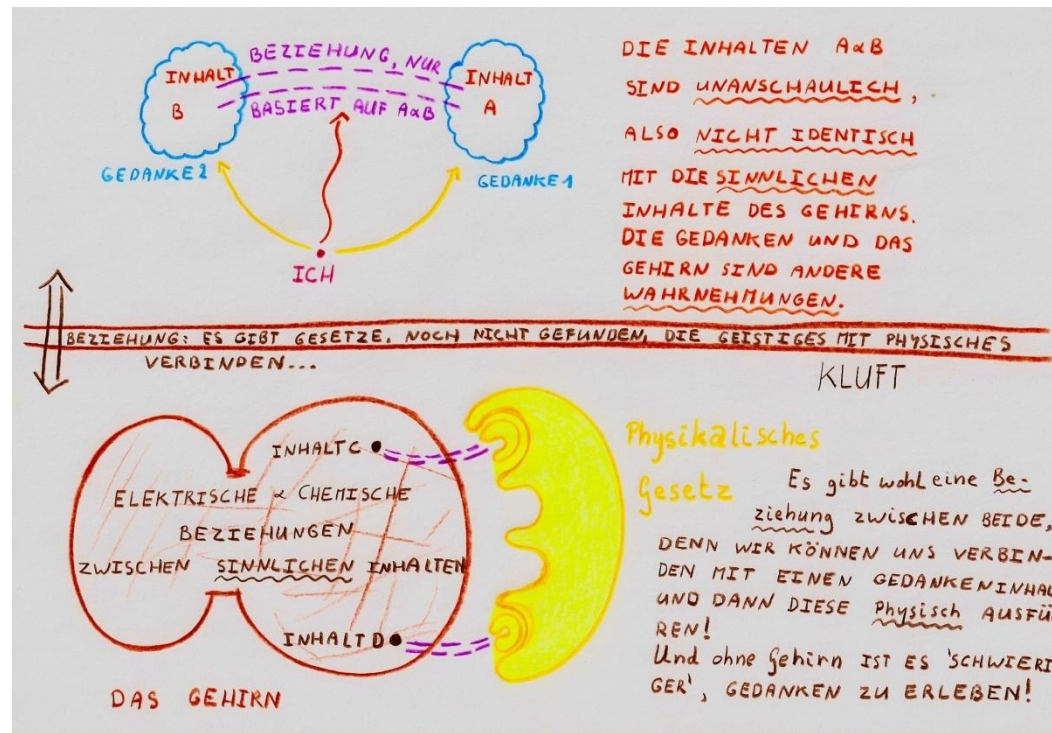 BEZIEHUNG, NUR
BASIERT AUF A&B
INHALT
B
INHALT
A
GEDANKE 2
GEDANKE 1
ICH
DIE INHALTEN A&B
SIND UNANSCHAULICH,
ALSO NICHT IDENTISCH
MIT DIE SINNLICHEN
INHALTE DES GEHIRNS.
DIE GEDANKEN UND DAS
GEHIRN SIND ANDERE
WAHRNEHMUNGEN.
BEZIEHUNG: ES GIBT GESETZE, NOCH NICHT GEFUNDEN, DIE GEISTIGES MIT PHYSISCHES
VERBINDEN...
KLUFT
INHALT C
ELEKTRISCHE & CHEMISCHE
BEZIEHUNGEN
ZWISCHEN SINNLICHEN INHALTEN
INHALT D
DAS GEHIRN
Physikalisches
Gesetz
Es gibt wohl eine Be-
ziehung ZWISCHEN BEIDE,
DENN WIR KÖNNEN UNS VERBIN-
DEN MIT EINEN GEDANKENINHAL
UND DANN DIESE Physisch AUSFÜ
REN!
Und ohne Gehirn IST ES 'SCHWIERI
GER', GEDANKEN ZU ERLEBEN!